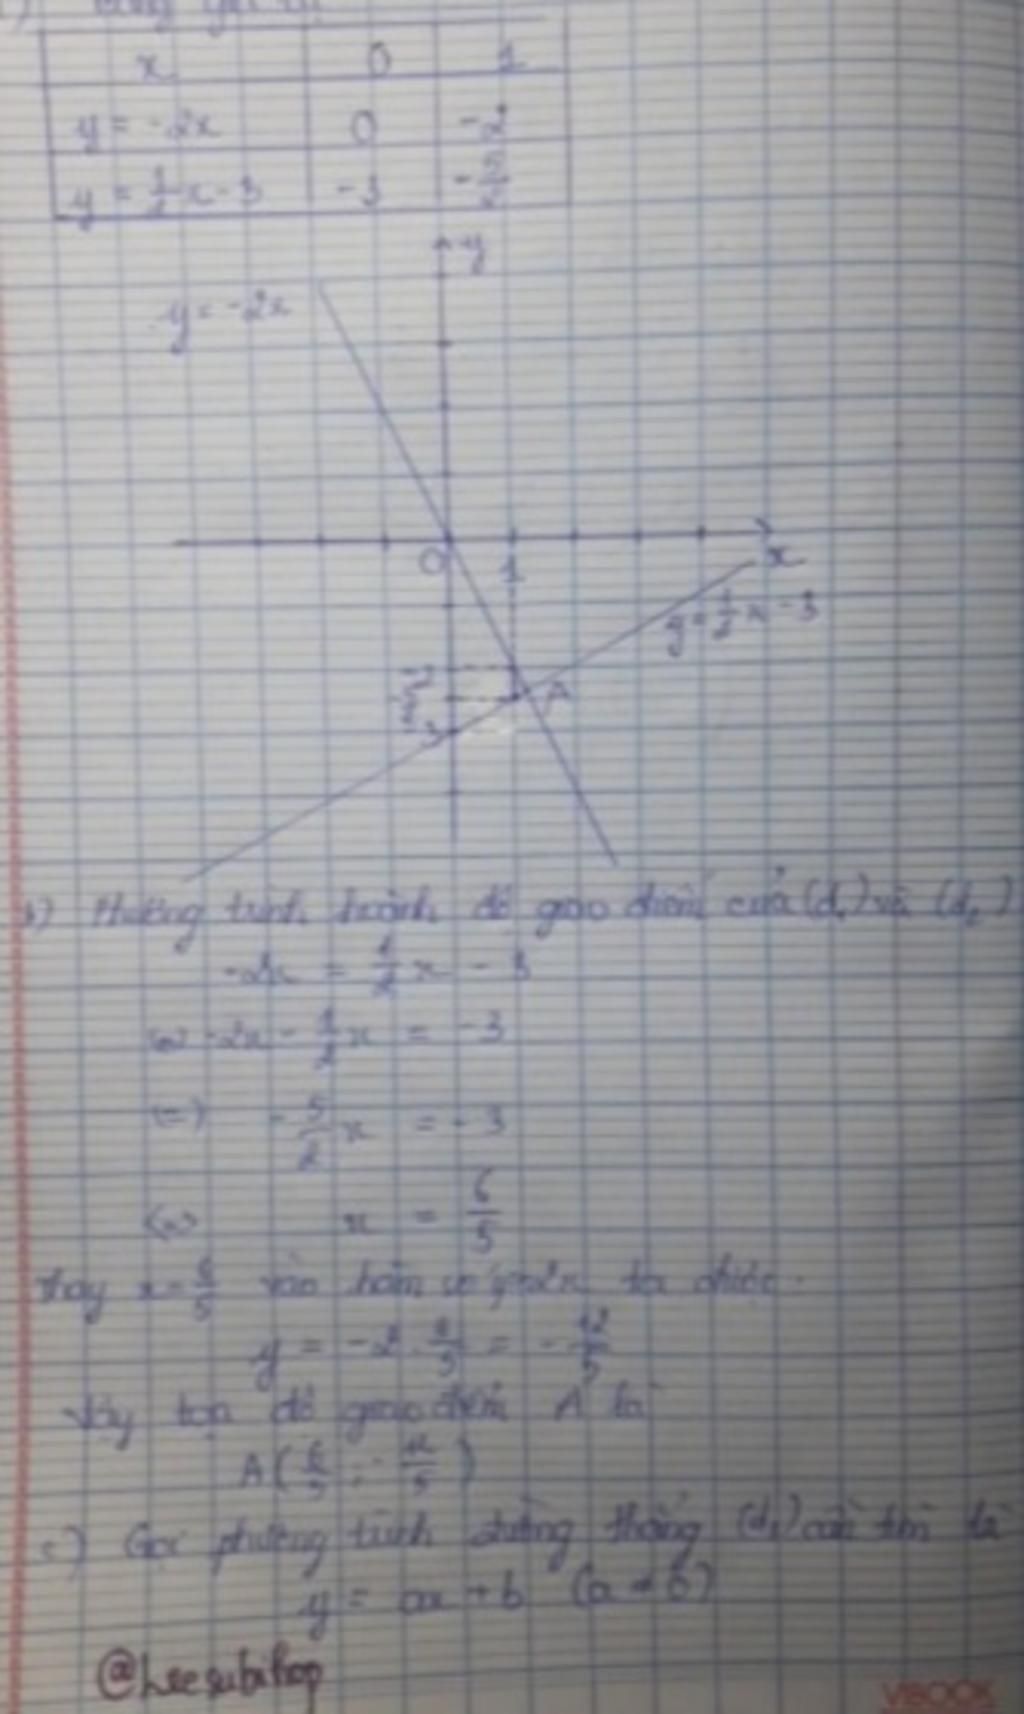 x 0 1
y = -2x 0 -2
y = 1/2 x - 3 -3 -5/2
y
y = -2x
O 1 x
y = 1/2 x - 3
-2
-5/2 A
-3
b) Phương trình hoành độ giao điểm của (d₁) và (d₂)
-2x = 1/2 x - 3
<=> -2x - 1/2 x = -3
<=> -5/2 x = -3
<=> x = 6/5
Thay x = 6/5 vào hàm số y=-2x ta được
y = -2 . 6/5 = -12/5
Vậy tọa độ giao điểm A là
A ( 6/5 ; -12/5 )
c) Gọi phương trình đường thẳng cần tìm là
y = ax + b
@Leesubihop
VIBOOK